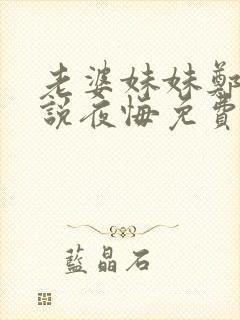 老婆妹妹鄭
說夜悔免費
藍晶石